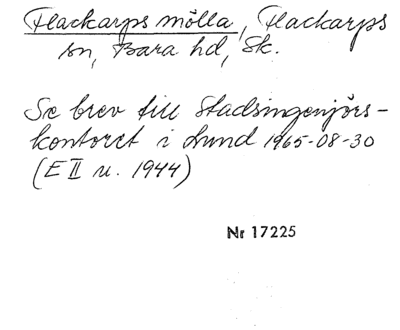 Flackarps mölla, Flackarps
sn, Bara hd, Sk.
Se brev till Stadsingenjörs-
kontoret i Lund 1965-08-30
(E II u. 1944)
Nr 17225